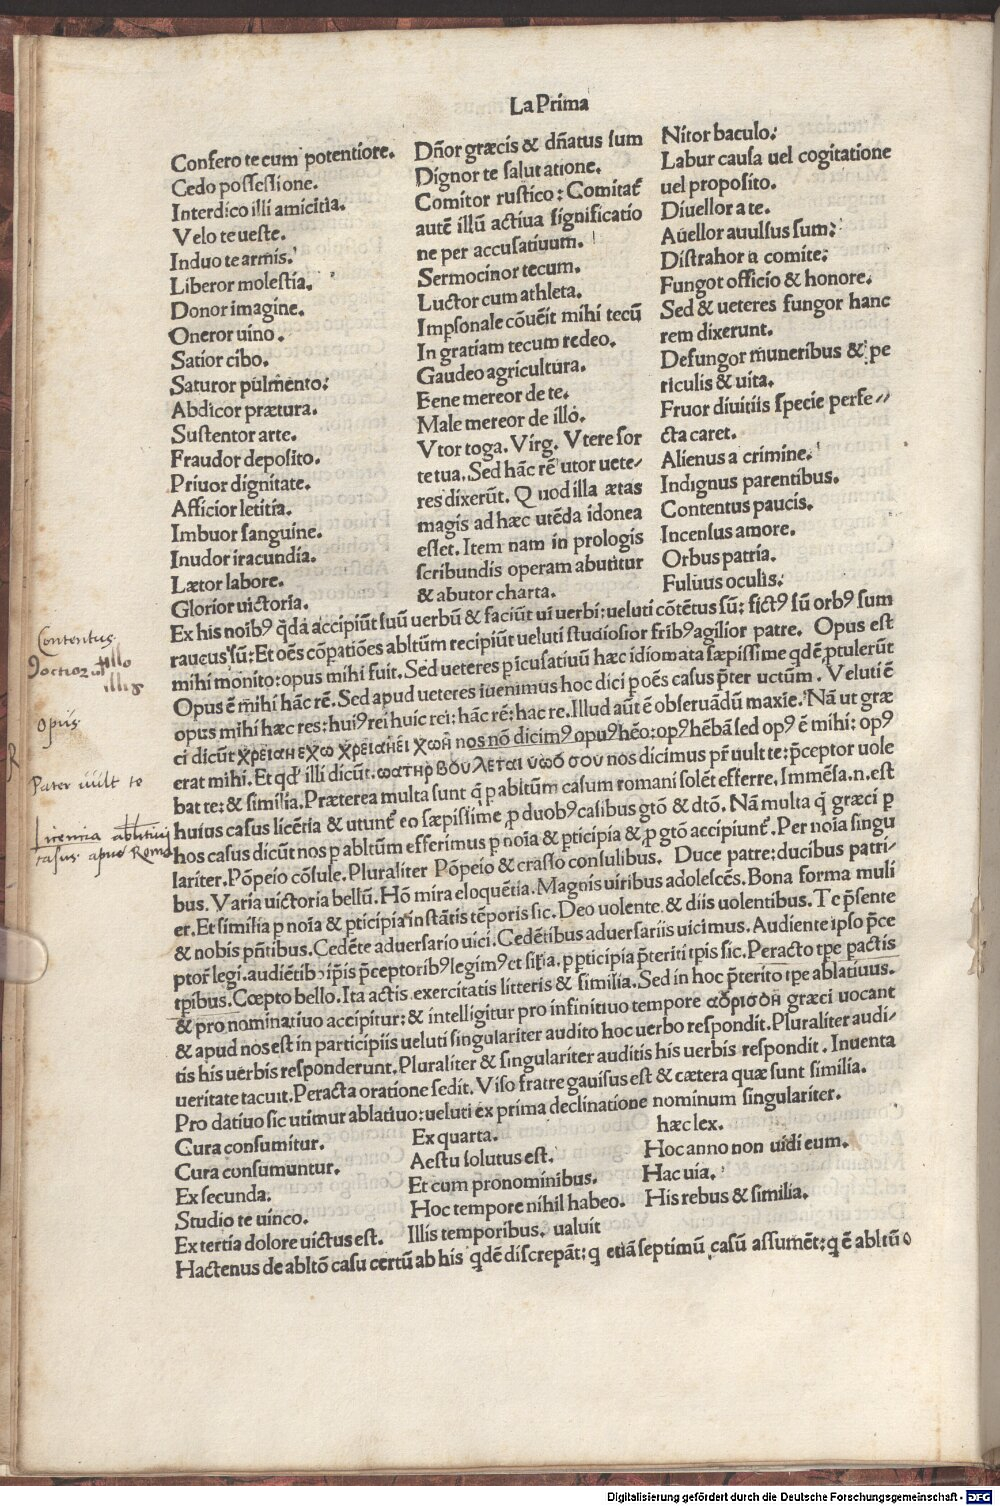 La Prima
Confero te cum potentiore.
Cedo possessione.
Interdico illi amicitia.
Velo te ueste.
Induo te armis.
Liberor molestia.
Donor imagine.
Oneror uino.
Satior cibo.
Saturor pulmento:
Abdicor prætura.
Sustentor arte.
Fraudor deposito.
Priuor dignitate.
Afficior letitia.
Imbuor sanguine.
Inudor iracundia.
Lætor labore.
Glorior uictoria.
Dñor græcis & dñatus sum
Dignor te salutatione.
Comitor rustico: Comitat᷑
autē illū actiua significatio
ne per accusatiuum.
Sermocinor tecum.
Luctor cum athleta.
Impsonale cōuēit mihi tecū
In gratiam tecum redeo.
Gaudeo agricultura.
Eene mereor de te.
Male mereor de illo.
Vtor toga. Virg. Vtere sor
te tua. Sed hāc rē utor uete-
res dixerūt. Quod illa ætas
magis ad hæc utēda idonea
esset. Item nam in prologis
scribundis operam abutitur
& abutor charta.
Nitor baculo:
Labur causa uel cogitatione
uel proposito.
Diuellor a te.
Auellor auulsus sum:
Distrahor a comite:
Fungor officio & honore.
Sed & ueteres fungor hanc
rem dixerunt.
Defungor muneribus & pe
riculis & uita.
Fruor diuitiis specie perfe-
cta caret.
Alienus a crimine.
Indignus parentibus.
Contentus paucis.
Incensus amore.
Orbus patria.
Fuluus oculis:
Ex his noibꝰ q̄dā accipiūt suū uerbū & faciūt ui uerbi: ueluti cōtētus sū: fictꝰ sū orbꝰ sum
raucus sū: Et oēs cōpatiōes abltūm recipiūt ueluti studiosior fribꝰ agilior patre. Opus est
mihi monito: opus mihi fuit. Sed ueteres p icusatiuū hæc idiomata sæpissime qdē ptulerūt
Opus ē mihi hāc rē. Sed apud ueteres iuenimus hoc dici p oēs casus pter uctūm. Veluti ē
opus mihi hæc res: huiꝰ rei huic rei: hāc rē: hac re. Illud aūt ē obseruādū maxie. Nā ut græ
ci dicūt χρειανεχω χρειανει χων nos nō dicimꝰ opuꝰ hēo: opꝰ hēbā sed opꝰ ē mihi: opꝰ
erat mihi. Et qd illi dicūt. ωατηρ βουλεται υωο σου nos dicimus pr uult te: pceptor uole
bat te: & similia. Præterea multa sunt q̄ p abltūm casum romani solēt efferre. Immēsa .n. est
huius casus licētia & utunt᷑ eo sæpissime p duobꝰ casibus gtō & dtō. Nā multa q̄ græci p
hos casus dicūt nos p abltūm efferimus p noia & pticipia & p gtō accipiunt᷑. Per noia singu
lariter. Pōpeio cōsule. Pluraliter Pōpeio & crasso consulibus. Duce patre: ducibus patri-
bus. Varia uictoria bellū. Hō mira eloquētia. Magnis uiribus adolescēs. Bona forma muli
er. Et similia p noia & pticipia instātis tēporis sic. Deo uolente & diis uolentibus. Te psente
& nobis pntibus. Cedēte aduersario uici. Cedētibus aduersariis uicimus. Audiente ipso pce
ptor legi. audiētibꝰ ipis pceptoribꝰ legimꝰ et silia. p pticipia pteriti tpis sic. Peracto tpe pactis
tpibus. Cœpto bello. Ita actis exercitatis litteris & similia. Sed in hoc pterito tpe ablatiuus.
& pro nominatiuo accipitur: & intelligitur pro infinitiuo tempore αορισον græci uocant
& apud nos est in participiis ueluti singulariter audito hoc uerbo respondit. Pluraliter audi-
tis his uerbis responderunt. Pluraliter & singulariter auditis his uerbis respondit. Inuenta
ueritate tacuit. Peracta oratione sedit. Viso fratre gauisus est & cætera quæ sunt similia.
Pro datiuo sic utimur ablatiuo: ueluti ex prima declinatione nominum singulariter.
Cura consumitur.
Cura consumuntur.
Ex secunda.
Studio te uinco.
Ex tertia dolore uictus est.
Ex quarta.
Aestu solutus est.
Et cum pronominibus.
Hoc tempore nihil habeo.
Illis temporibus. ualuit
hæc lex.
Hoc anno non uidi eum.
Hac uia.
His rebus & similia.
Hactenus de abltō casu certū ab his qdē discrepāt: q etiā septimū casū assumēt: q ē abltū o
Contentus
Doctior illo
illis
opus
Pater uult te
Licentia abltiui
casus apud Romā
Digitalisierung gefördert durch die Deutsche Forschungsgemeinschaft - DFG